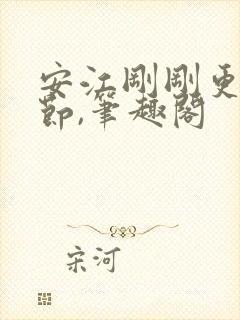 安江剛剛更
節,筆趣閣
宋河